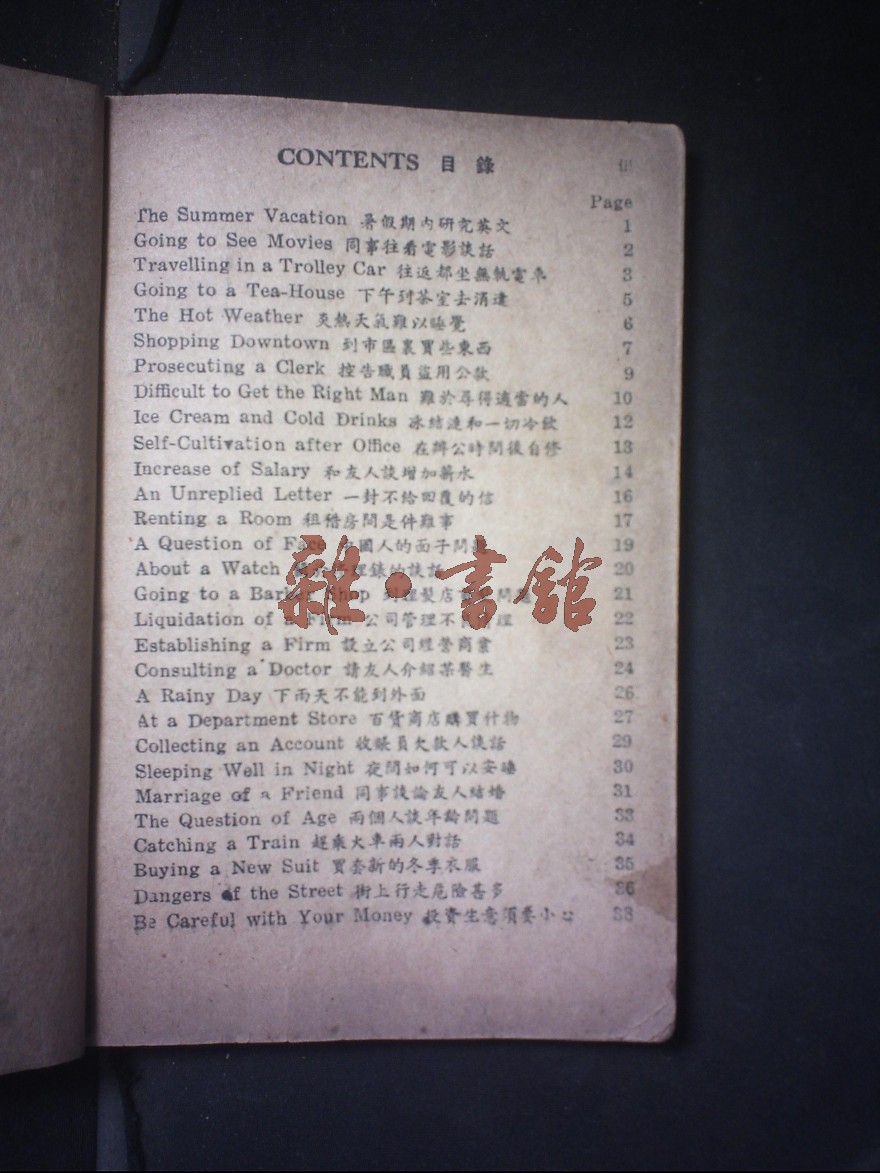 CONTENTS 目錄
Page
The Summer Vacation 暑假期內研究英文 1
Going to See Movies 同事往看電影談話 2
Travelling in a Trolley Car 往返都坐無軌電車 3
Going to a Tea-House 下午到茶室去消遣 5
The Hot Weather 炎熱天氣難以睡覺 6
Shopping Downtown 到市區裏買些東西 7
Prosecuting a Clerk 控告職員盜用公款 9
Difficult to Get the Right Man 難於尋得適當的人 10
Ice Cream and Cold Drinks 冰結漣和一切冷飲 12
Self-Cultivation after Office 在辦公時間後自修 13
Increase of Salary 和友人談增加薪水 14
An Unreplied Letter 一封不給回覆的信 16
Renting a Room 租稭房間是件難事 17
A Question of Face 國人的面子問題 19
About a Watch 錶的談話 20
Going to a Barber Shop 理髮店 問題 21
Liquidation of a Firm 公司管理不 理 22
Establishing a Firm 設立公司經營商業 23
Consulting a Doctor 請友人介紹某醫生 24
A Rainy Day 下雨天不能到外面 26
At a Department Store 百貨商店購買什物 27
Collecting an Account 收賬員欠款人談話 29
Sleeping Well in Night 夜間如何可以安睡 30
Marriage of a Friend 同事談論友人結婚 31
The Question of Age 兩個人談年齡問題 33
Catching a Train 趕乘火車兩人對話 34
Buying a New Suit 買套新的冬季衣服 35
Dangers of the Street 街上行走危險甚多 36
Be Careful with Your Money 投資生意須要小心 38
雜·書館